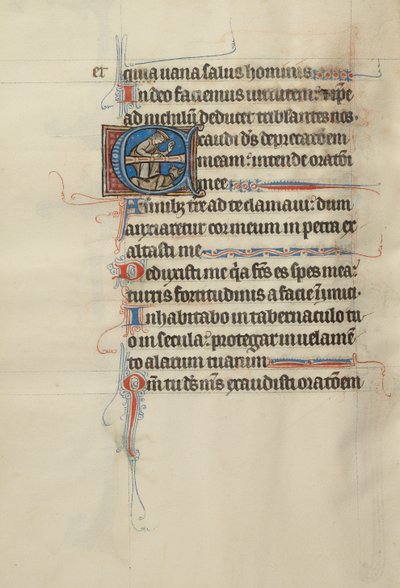 et quia uana salus hominis
In deo faciemus uirtutem: ⁊ ip̄e
ad nichilū deducet tribulantes nos.
Exaudi ds̄ deprecatōem
meam: intende oratōi
mee
A finibꝫ tr̄e ad te clamaui: dum
anxiaretur cor meum in petra ex
altasti me
Deduxisti me q̄a fc̄s es spes mea:
turris fortitudinis a facie inimici.
Inhabitabo in tabernaculo tu
o in secula: protegar in uelamē
to alarum tuarum
Qm̄ tu ds̄ ms̄ exaudisti oratōem